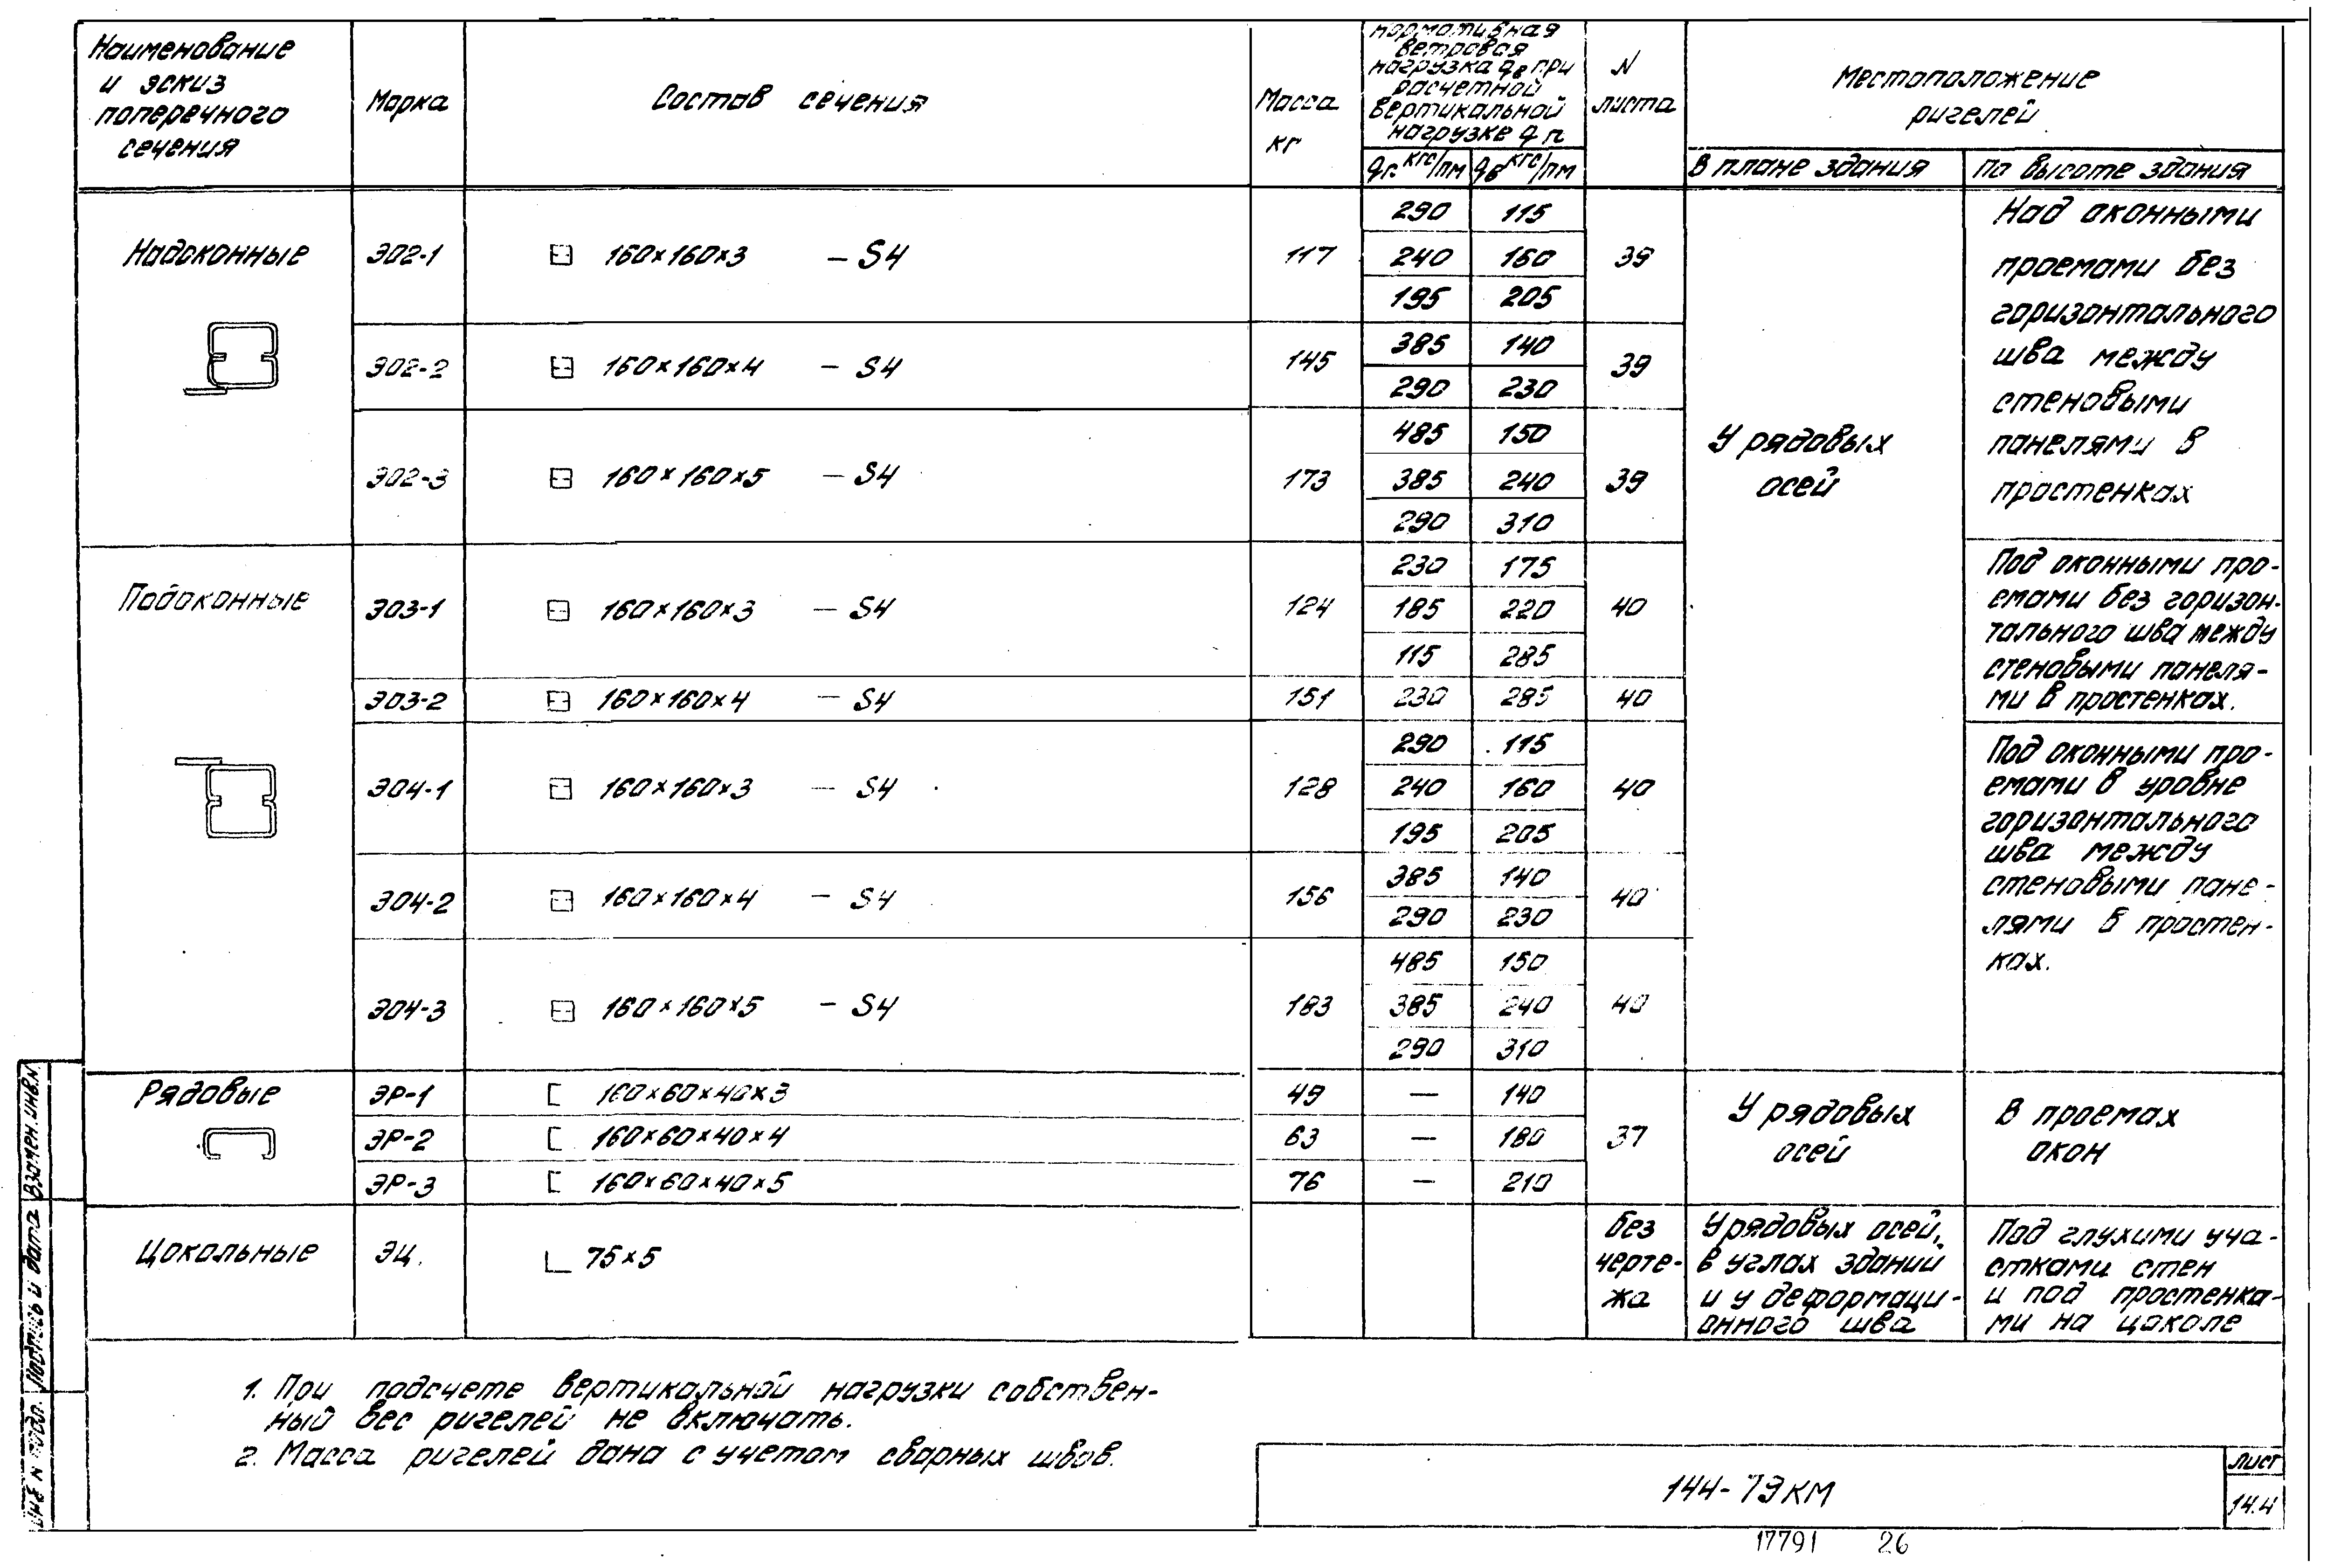 Наименование
и эскиз
поперечного
сечения
Марка
Состав сечения
Масса
кг
нормативная
ветровая
нагрузка qв при
расчетной
вертикальной
нагрузке qп
qг. кгс/пм
qв кгс/пм
N
листа
Местоположение
ригелей
в плане здания
по высоте здания
Надоконные
ЭО2-1 160×160×3 — S4 117 39
290 115
240 160
195 205
ЭО2-2 160×160×4 — S4 145 39
385 140
290 230
ЭО2-3 160×160×5 — S4 173 39
485 150
385 240
290 310
У рядовых
осей
Над оконными
проемами без
горизонтального
шва между
стеновыми
панелями в
простенках
Подоконные
ЭО3-1 160×160×3 — S4 124 40
230 175
185 220
115 285
ЭО3-2 160×160×4 — S4 151 230 285 40
Под оконными про-
емами без горизон-
тального шва между
стеновыми панеля-
ми в простенках.
ЭО4-1 160×160×3 — S4 128 40
290 115
240 160
195 205
ЭО4-2 160×160×4 — S4 156 40
385 140
290 230
ЭО4-3 160×160×5 — S4 183 40
485 150
385 240
290 310
Под оконными про-
емами в уровне
горизонтального
шва между
стеновыми пане-
лями в простен-
ках.
Рядовые
ЭР-1 160×60×40×3 49 — 140
ЭР-2 160×60×40×4 63 — 180
ЭР-3 160×60×40×5 76 — 210
37
У рядовых
осей
В проемах
окон
Цокольные
ЭЦ. 75×5
без
черте-
жа
У рядовых осей,
в углах здания
и у деформаци-
онного шва
Под глухими уча-
стками стен
и под простенка-
ми на цоколе
1. При подсчете вертикальной нагрузки собствен-
ный вес ригелей не включать.
2. Масса ригелей дана с учетом сварных швов.
144-79КМ
лист
14.4
17791 26
Взамен. инв.N
Подпись и дата
Инв N подл.